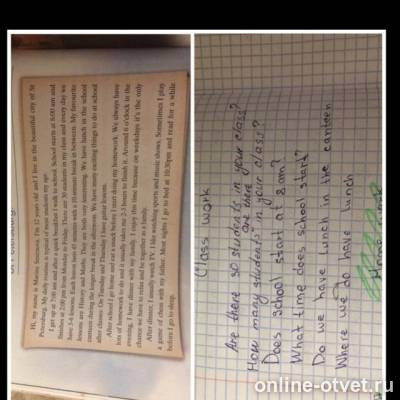 Hi, my name is Marina Smirnova. I'm 12 years old and I live in the beautiful city of St
Petersburg. My daily routine is typical of most students my age.
I get up at 7:00 am and after a quick breakfast I walk to school. School starts at 8:00 am and
finishes at 2:00 pm from Monday to Friday. There are 30 students in my class and every day we
have 5-6 lessons. Each lesson lasts 45 minutes with a 10-minute break in between. My favourite
lessons are History and Maths. They are both very interesting. We have lunch in the school
canteen during the longer break in the afternoon. We have many exciting things to do at school
after classes. On Tuesday and Thursday I have guitar lessons.
After school I go home and eat a snack before I start on my homework. We always have
lots of homework to do and it usually takes me 2-3 hours to finish it. Around 6 o'clock in the
evening, I have dinner with my family. I enjoy this time because on weekdays it's the only
chance we have to relax and be together as a family.
After dinner, I usually watch TV. I like watching sports and music shows. Sometimes I play
a game of chess with my father. Most nights I go to bed at 10:30pm and read for a while
before I go to sleep.
Class work
Are there 30 students in your class?
are there
How many students in your class?
Does school start at 8 am?
What time does school start?
Do we have lunch in the canteen
Where we do have lunch
Home work
online-otvet.ru